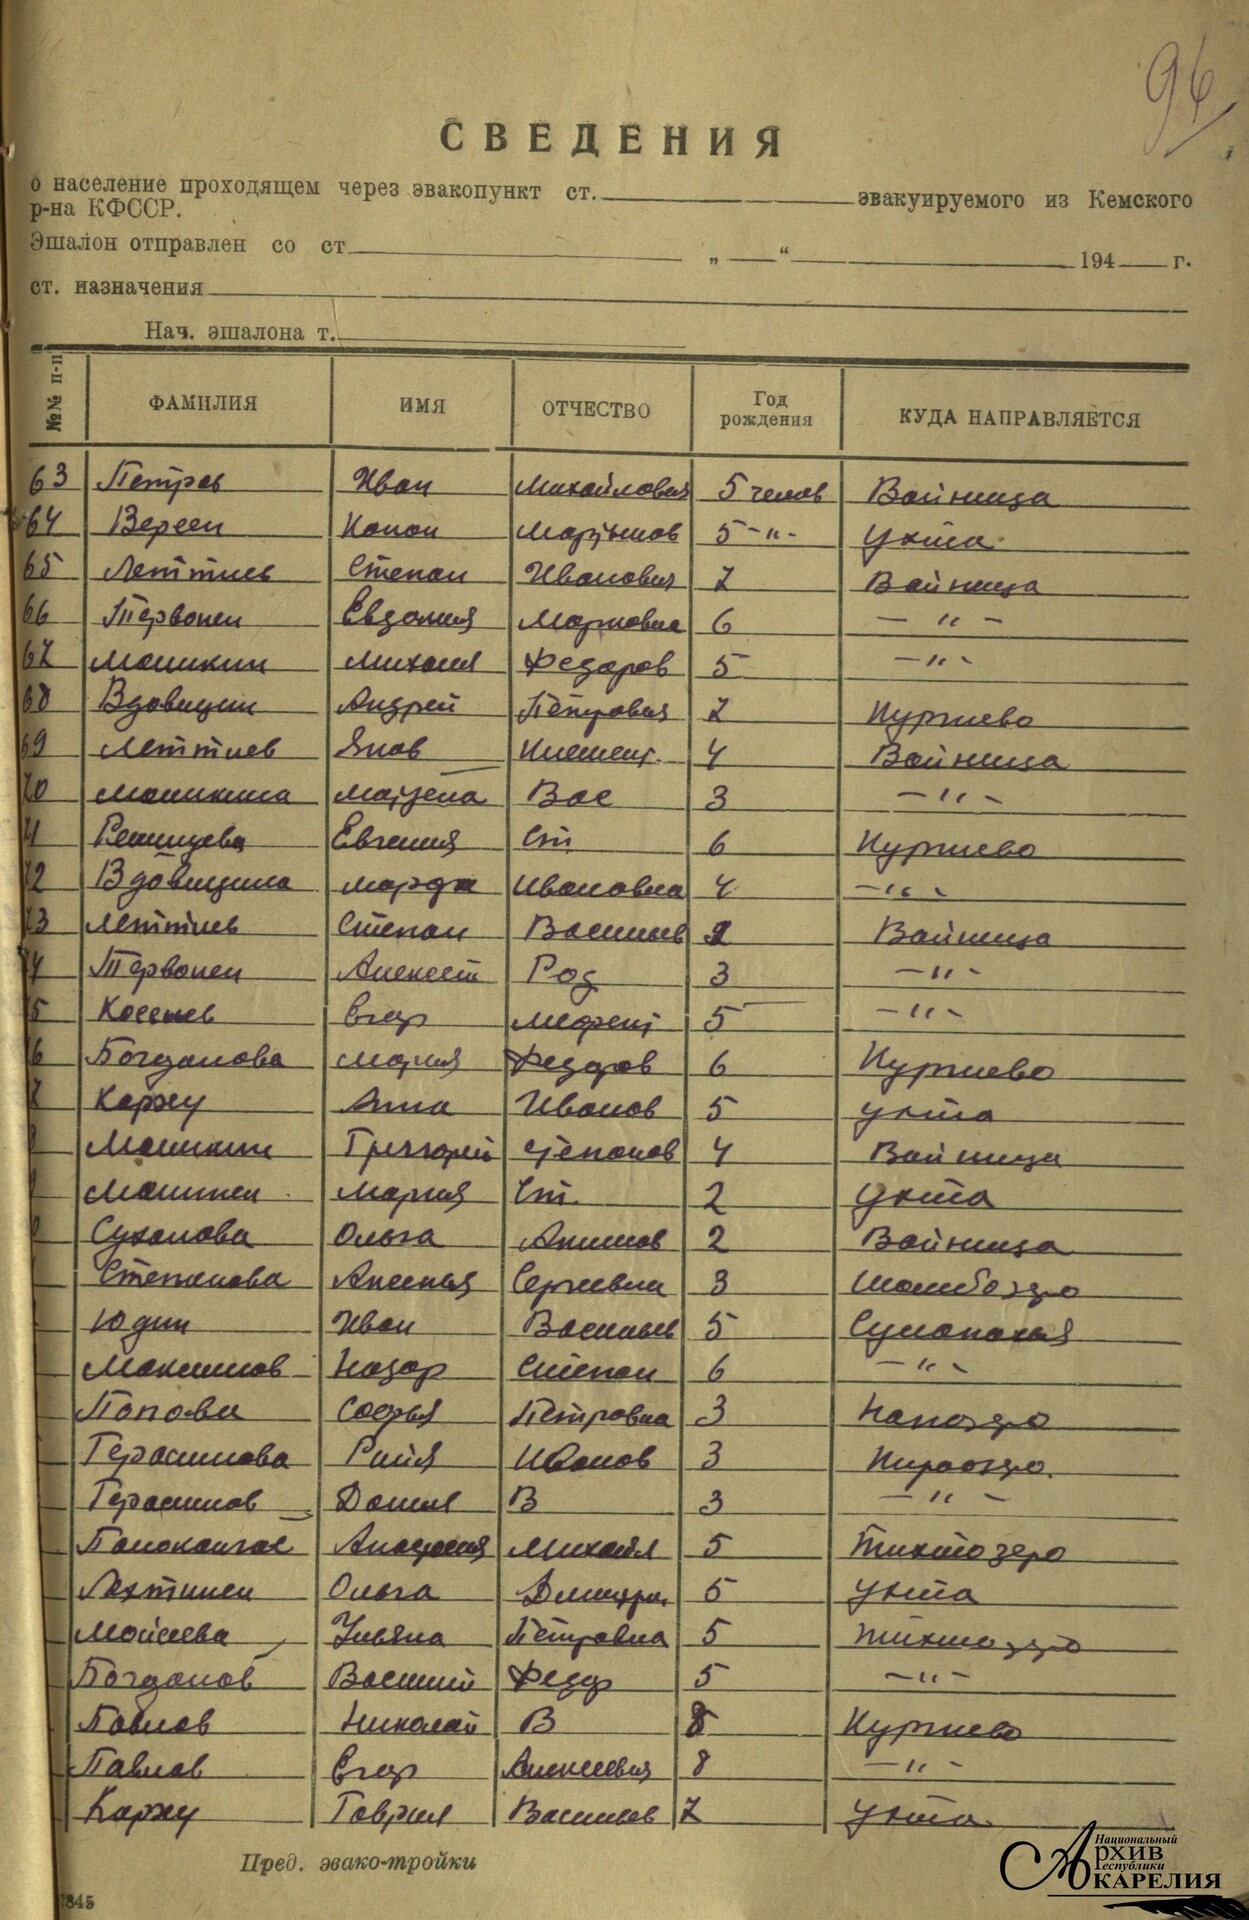 96
СВЕДЕНИЯ
о население проходящем через эвакопункт ст. эвакуируемого из Кемского
р-на КФССР.
Эшалон отправлен со ст „ “ 194 г.
ст. назначения
Нач. эшалона т.
№№ п-п ФАМИЛИЯ ИМЯ ОТЧЕСТВО Год рождения КУДА НАПРАВЛЯЕТСЯ
63 Петров Иван Михайлович 5 челов Войница
64 Вереен Конон Мартынов 5 -"- Ухта
65 Леттиев Степан Иванович 7 Войница
66 Тервонен Евдокия Марковна 6 -"-
67 Маликин Михаил Федоров 5 -"-
68 Вдовицин Андрей Петрович 7 Куржиево
69 Леттиев Яков Климент. 4 Войница
70 Маликина Матрена Вас 3 -"-
71 Евгения Ст 6 Куржиево
72 Вдовицина Марфа Ивановна 4 -"-
73 Леттиев Степан Васильев 2 Войница
74 Тервонен Алексей Род 3 -"-
5 Егор 5 -"-
6 Богданова Мария Федоров 6 Куржиево
7 Каржу Анна Иванов 5 Ухта
8 Маликин Григорий Степанов 4 Войница
Малинен Мария Ст. 2 Ухта
0 Суханова Ольга Акимов 2 Войница
Степанова Аксинья Сергеевна 3 Шомбозеро
Юдин Иван Васильев 5
Максимов Назар Степан 6 -"-
Попова Софья Петровна 3
Герасимова Райя Иванов 3
Герасимов Данил В 3 -"-
Михайл 5 Тихтозеро
Лехтинен Ольга Дмитри. 5 Ухта
Мойсеева Ульяна Петровна 5 Тихтозеро
Богданов Василий Федор 5 -"-
Павлов Николай В 8 Куржиево
Павлов Егор Алексеевич 8 -"-
Каржу Гаврил Васильев 7 Ухта.
Пред. эвако-тройки
7845
Национальный
Архив
Республики
КАРЕЛИЯ